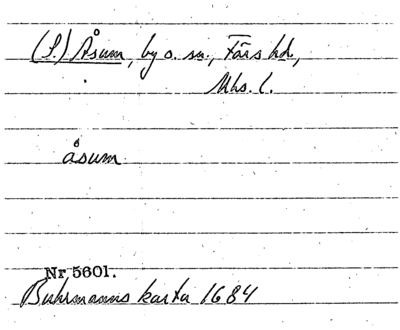 (S.) Åsum, by o. sn., Färs hd,
Mhs. l.
åsum
Nr 5601.
Buhrmanns karta 1684